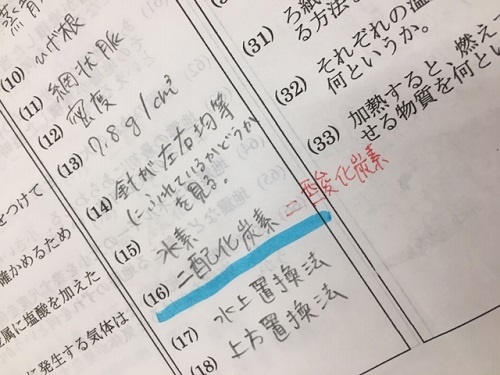 (10) ひげ根
(11) 網状脈
(12) 密度
(13) 7.8g/cm³
(14) 針が左右均等
にふれているかどうか
を見る。
(15) 水素
(16) 二配化炭素
二酸化炭素
(17) 水上置換法
(18) 上方置換法
(31) ろ紙
る方法
(32) それぞれの温
何というか。
(33) 加熱すると、燃え
せる物質を何とい
をつけて
確かめるため
属に塩酸を加えた
に発生する気体は